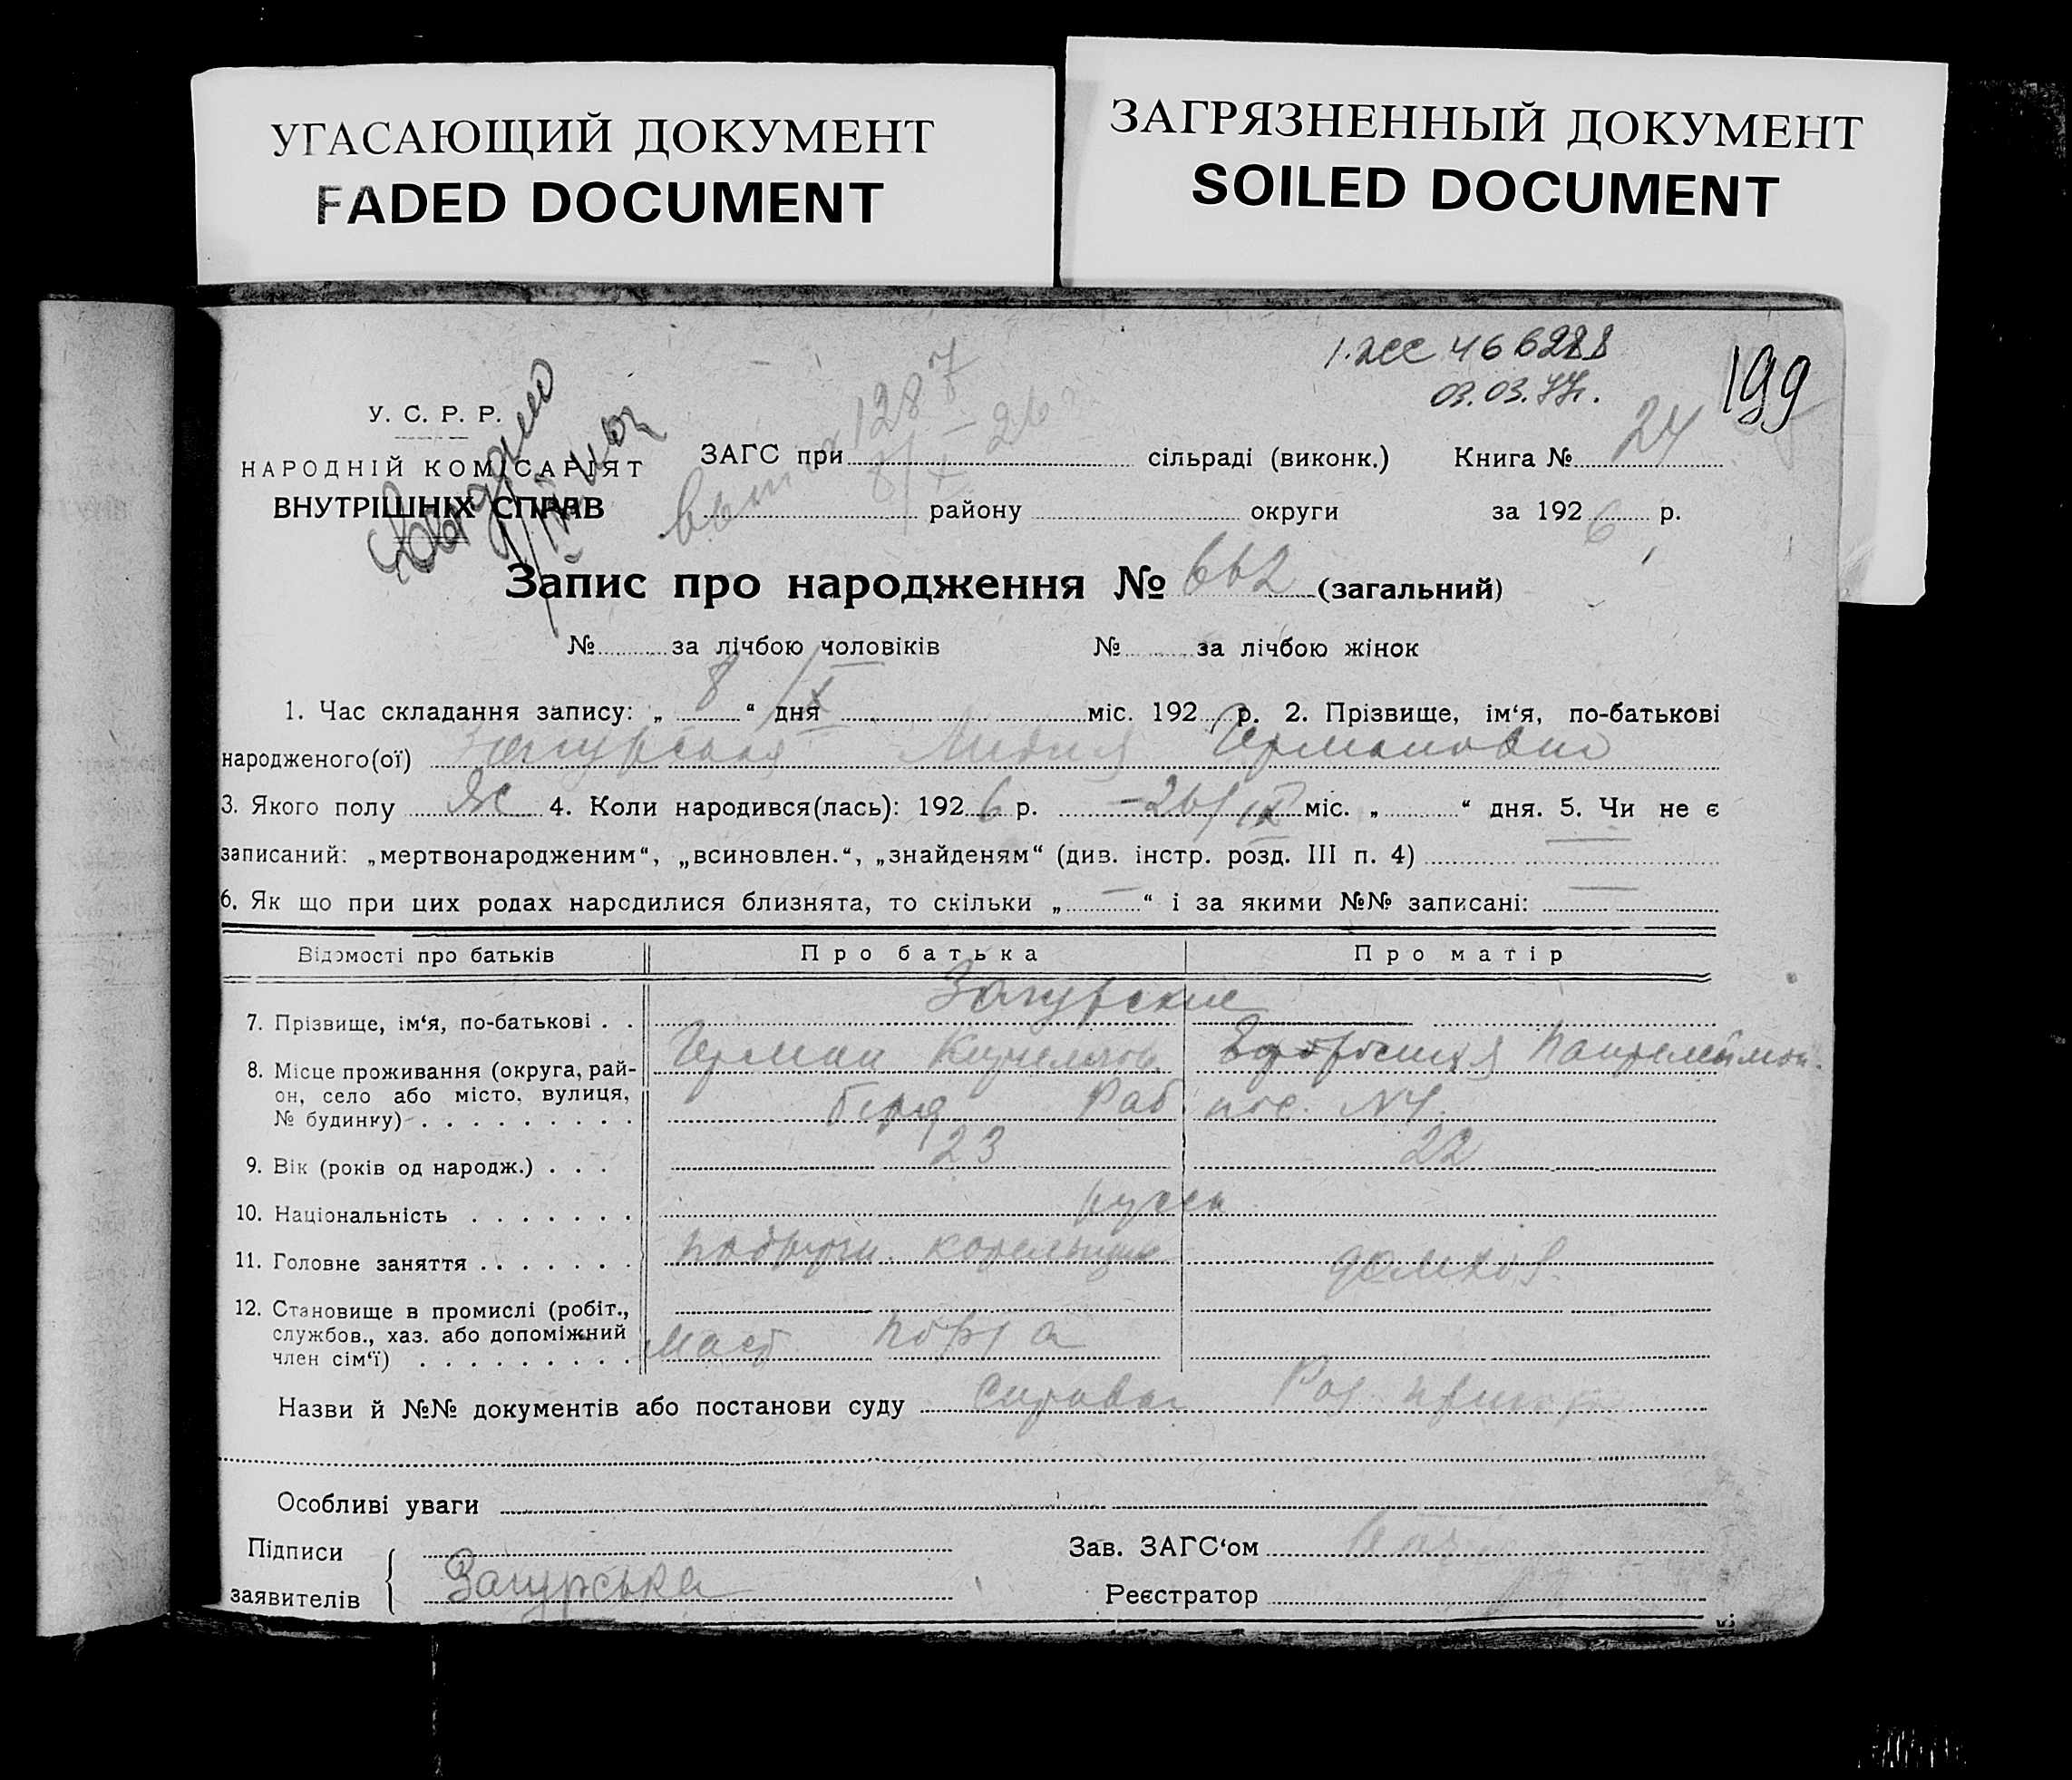 УГАСАЮЩИЙ ДОКУМЕНТ
FADED DOCUMENT
ЗАГРЯЗНЕННЫЙ ДОКУМЕНТ
SOILED DOCUMENT
466288
03.03.77г.
199
У. С. Р. Р.
НАРОДНІЙ КОМІСАРІЯТ
ВНУТРІШНІХ СПРАВ
1287
8/X - 26 г.
ЗАГС при сільраді (виконк.) Книга № 24
району округи за 1926 р.
Запис про народження № 662 (загальний)
№ за лічбою чоловіків № за лічбою жінок
1. Час складання запису: „ 8 “ дня /X міс. 192 р. 2. Прізвище, ім‘я, по-батькові
народженого(ої) Загурская Лидия Германовна
3. Якого полу Ж 4. Коли народився(лась): 1926 р. – 26/IX міс. „ “ дня. 5. Чи не є
записаний: „мертвонародженим“, „всиновлен.“, „знайденям“ (див. інстр. розд. III п. 4) —
6. Як що при цих родах народилися близнята, то скільки „ — “ і за якими №№ записані: —
Відомості про батьків Про батька Про матір
7. Прізвище, ім‘я, по-батькові . . Загурские
8. Місце проживання (округа, рай-
он, село або місто, вулиця,
№ будинку) . . . . . . . . .
Герман Раб. пос. №1.
9. Вік (років од народж.) . . . 23 22
10. Національність . . . . . . . русск
11. Головне заняття . . . . . . .
12. Становище в промислі (робіт.,
службов., хаз. або допоміжний
член сім‘ї) . . . . . . . . .
порта
Назви й №№ документів або постанови суду справка
Особливі уваги
Підписи
заявителів
Загурська
Зав. ЗАГС‘ом
Реєстратор